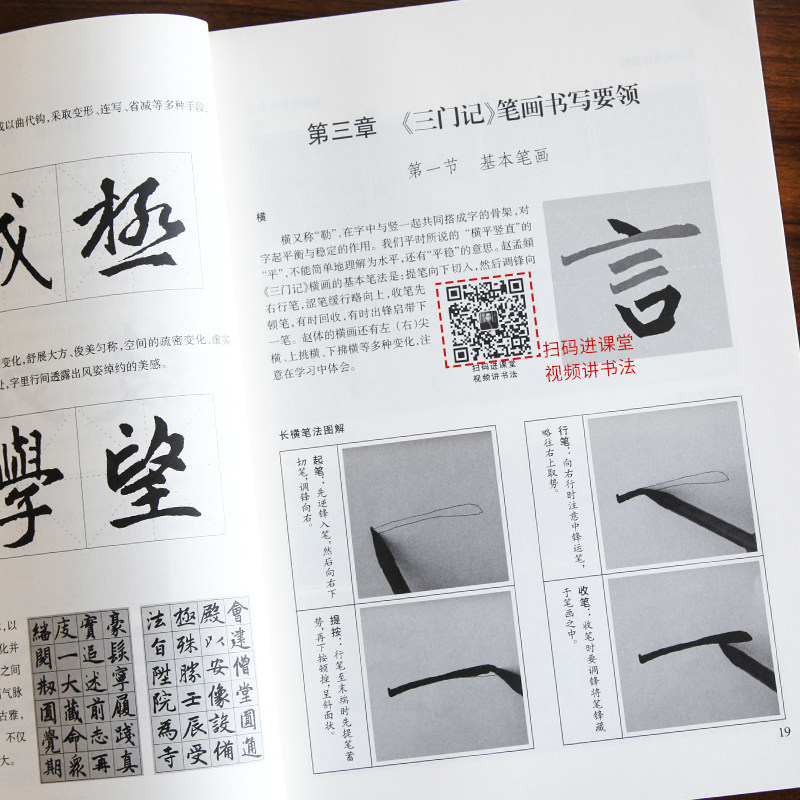 以曲代钩,采取变形、连写、省减等多种手段,
極
變化,舒展大方、俊美匀称,空间的疏密变化、虚实
处,字里行间透露出风姿绰约的美感。
學望
以
化并
之间
气脉
古雅,
不仅
大。
豪髮寧願踐真
實追述前志再
度一大藏命眾
繙閱剏圓覺期
會建僧堂圓通
殿以安像設備
極殊勝壬辰受
法旨陞院為寺
第三章 《三门记》笔画书写要领
第一节 基本笔画
横
横又称“勒”,在字中与竖一起共同搭成字的骨架,对
字起平衡与稳定的作用。我们平时所说的“横平竖直”的
“平”,不能简单地理解为水平,还有“平稳”的意思。赵孟頫
《三门记》横画的基本笔法是:提笔向下切入,然后调锋向
右行笔,涩笔缓行略向上,收笔先
顿笔,有时回收,有时出锋启带下
一笔。赵体的横画还有左(右)尖
横、上挑横、下拂横等多种变化,注
意在学习中体会。
扫码进课堂
视频讲书法
言
扫码进课堂
视频讲书法
长横笔法图解
起笔:先逆锋入笔,然后向右下
切笔,调锋向右。
行笔:向右行时注意中锋运笔,
略往右上取势。
提按:行笔至末端时先提笔蓄
势,再下按顿挫,呈斜面状。
收笔:收笔时要调锋将笔锋藏
于笔画之中。
19